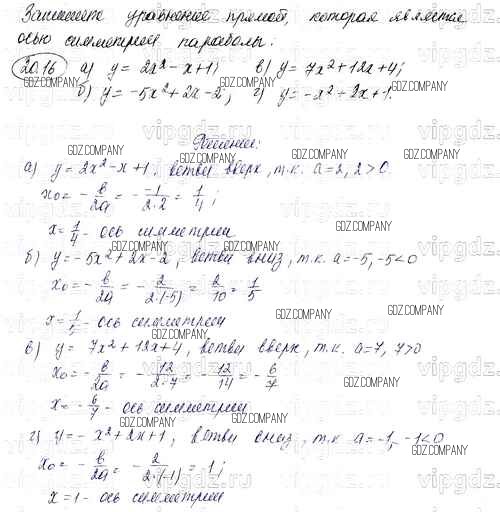 Запишите уравнение прямой, которая является
осью симметрии параболы:
20.16 а) y = 2x² - x + 1; в) y = 7x² + 12x + 4;
б) y = -5x² + 2x - 2; г) y = -x² + 2x + 1.
Решение:
а) y = 2x² - x + 1, ветви вверх, т.к. a = 2, 2 > 0
x₀ = -b/2a = - -1/2·2 = 1/4;
x = 1/4 - ось симметрии
б) y = -5x² + 2x - 2, ветви вниз, т.к. a = -5, -5 < 0
x₀ = -b/2a = -2/2·(-5) = 2/10 = 1/5
x = 1/5 - ось симметрии
в) y = 7x² + 12x + 4, ветви вверх, т.к. a = 7, 7 > 0
x₀ = -b/2a = -12/2·7 = -12/14 = -6/7
x = -6/7 - ось симметрии
г) y = -x² + 2x + 1, ветви вниз, т.к. a = -1, -1 < 0
x₀ = -b/2a = -2/2·(-1) = 1;
x = 1 - ось симметрии
GDZ.COMPANY
vipgdz.ru